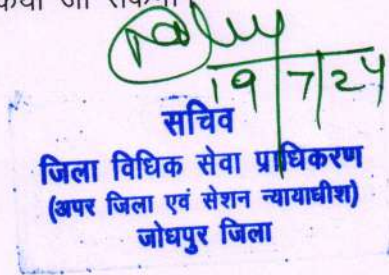 जा सकेगा
19/7/24
सचिव
जिला विधिक सेवा प्राधिकरण
(अपर जिला एवं सेशन न्यायाधीश)
जोधपुर जिला